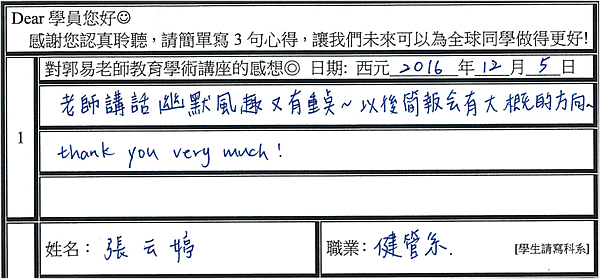 Dear 學員您好☺
感謝您認真聆聽，請簡單寫 3 句心得，讓我們未來可以為全球同學做得更好!
對郭易老師教育學術講座的感想◎ 日期: 西元 2016 年 12 月 5 日
1
老師講話幽默風趣又有重点~以後簡報会有大概的方向~
thank you very much!
姓名： 張云婷 職業： 健管系. [學生請寫科系]